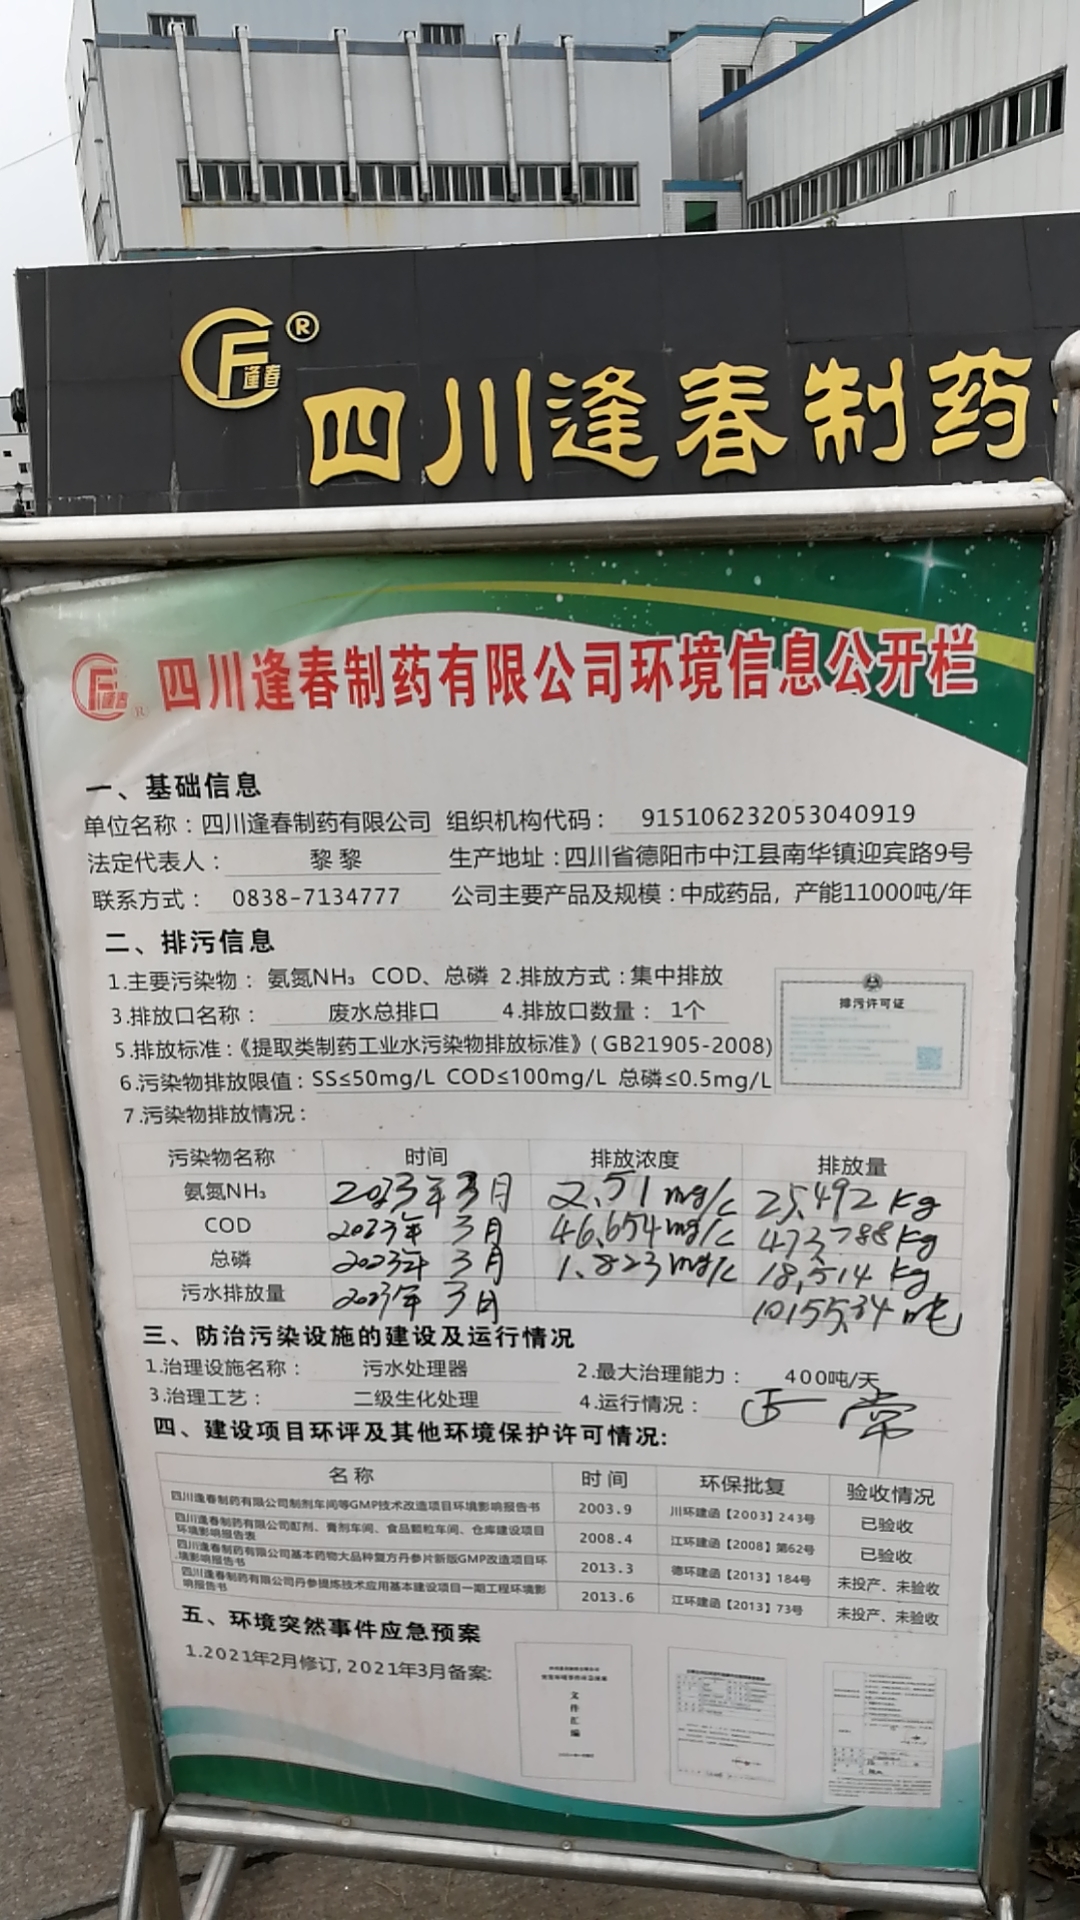 CF逢春®
四川逢春制药
CF逢春® 四川逢春制药有限公司环境信息公开栏
一、基础信息
单位名称：四川逢春制药有限公司 组织机构代码： 915106232053040919
法定代表人： 黎黎 生产地址：四川省德阳市中江县南华镇迎宾路9号
联系方式： 0838-7134777 公司主要产品及规模：中成药品，产能11000吨/年
二、排污信息
1.主要污染物： 氨氮NH₃ COD、总磷 2.排放方式：集中排放
3.排放口名称： 废水总排口 4.排放口数量： 1个
5.排放标准：《提取类制药工业水污染物排放标准》(GB21905-2008)
6.污染物排放限值：SS≤50mg/L COD≤100mg/L 总磷≤0.5mg/L
7.污染物排放情况：
排污许可证
污染物名称 时间 排放浓度 排放量
氨氮NH₃ 2023年3月 2.51mg/L 25.492kg
COD 2023年3月 46.654mg/L 473.788kg
总磷 2023年3月 1.823mg/L 18.514kg
污水排放量 2023年3月 10155.34吨
三、防治污染设施的建设及运行情况
1.治理设施名称： 污水处理器 2.最大治理能力： 400吨/天
3.治理工艺： 二级生化处理 4.运行情况： 正常
四、建设项目环评及其他环境保护许可情况:
名称 时间 环保批复 验收情况
四川逢春制药有限公司制剂车间等GMP技术改造项目环境影响报告书 2003.9 川环建函【2003】243号 已验收
四川逢春制药有限公司酊剂、膏剂车间、食品颗粒车间、仓库建设项目环境影响报告表 2008.4 江环建函【2008】第62号 已验收
四川逢春制药有限公司基本药物大品种复方丹参片新版GMP改造项目环境影响报告书 2013.3 德环建函【2013】184号 未投产、未验收
四川逢春制药有限公司丹参提炼技术应用基本建设项目一期工程环境影响报告书 2013.6 江环建函【2013】73号 未投产、未验收
五、环境突然事件应急预案
1.2021年2月修订,2021年3月备案:
文件汇编